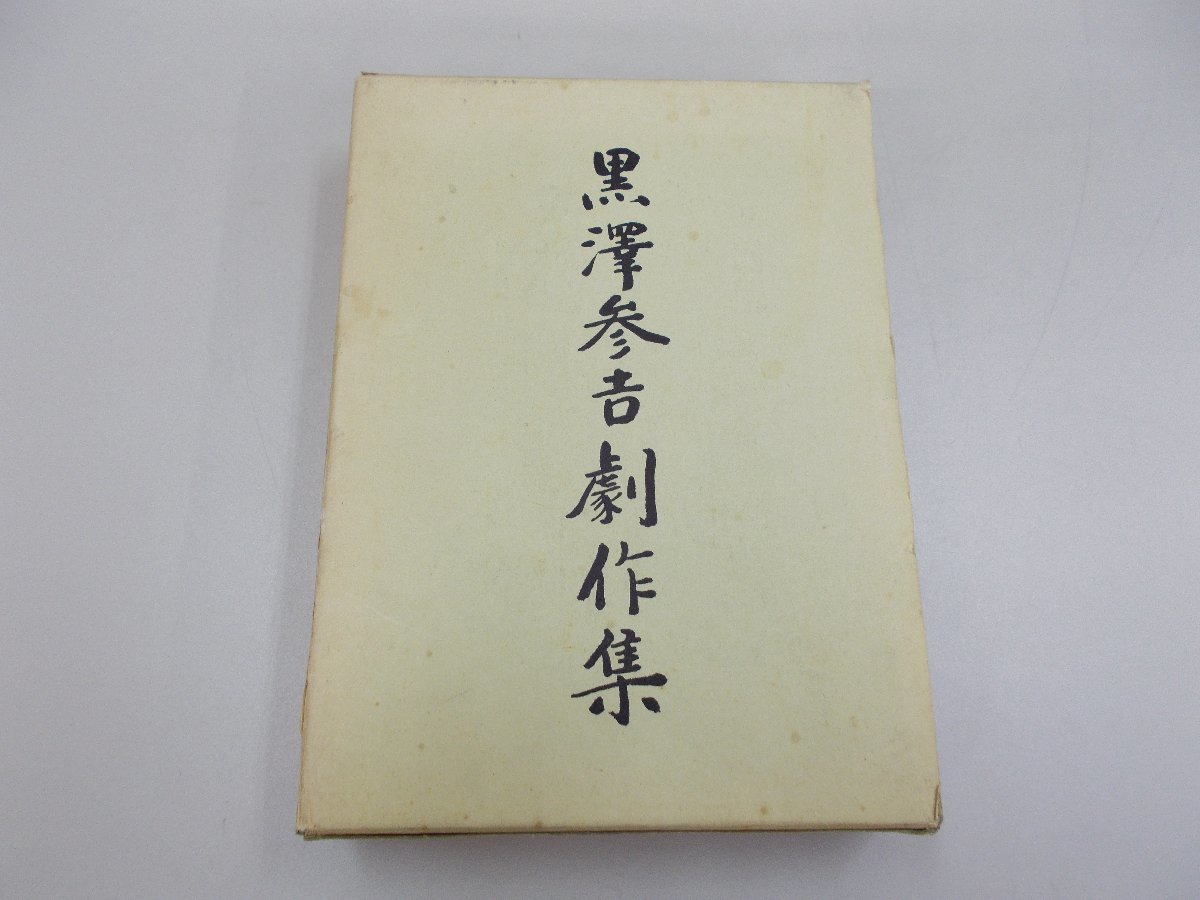 黒澤参𠮷劇作集